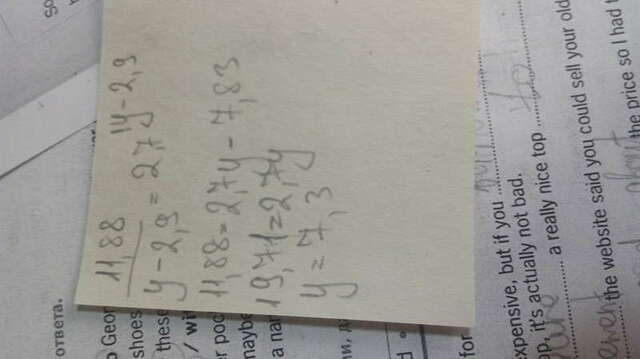 ответа.
So
Geor
11,88
—— = 2,7 |y-2,9
y-2,9
shoes
these
/ wit
11,88=2,7y-7,83
er poc
maybe
19,71=2,7y
a nar
y=7,3
for
expensive, but if you
op, it's actually not bad.
a really nice top
the website said you could sell your old
about the price so I had t